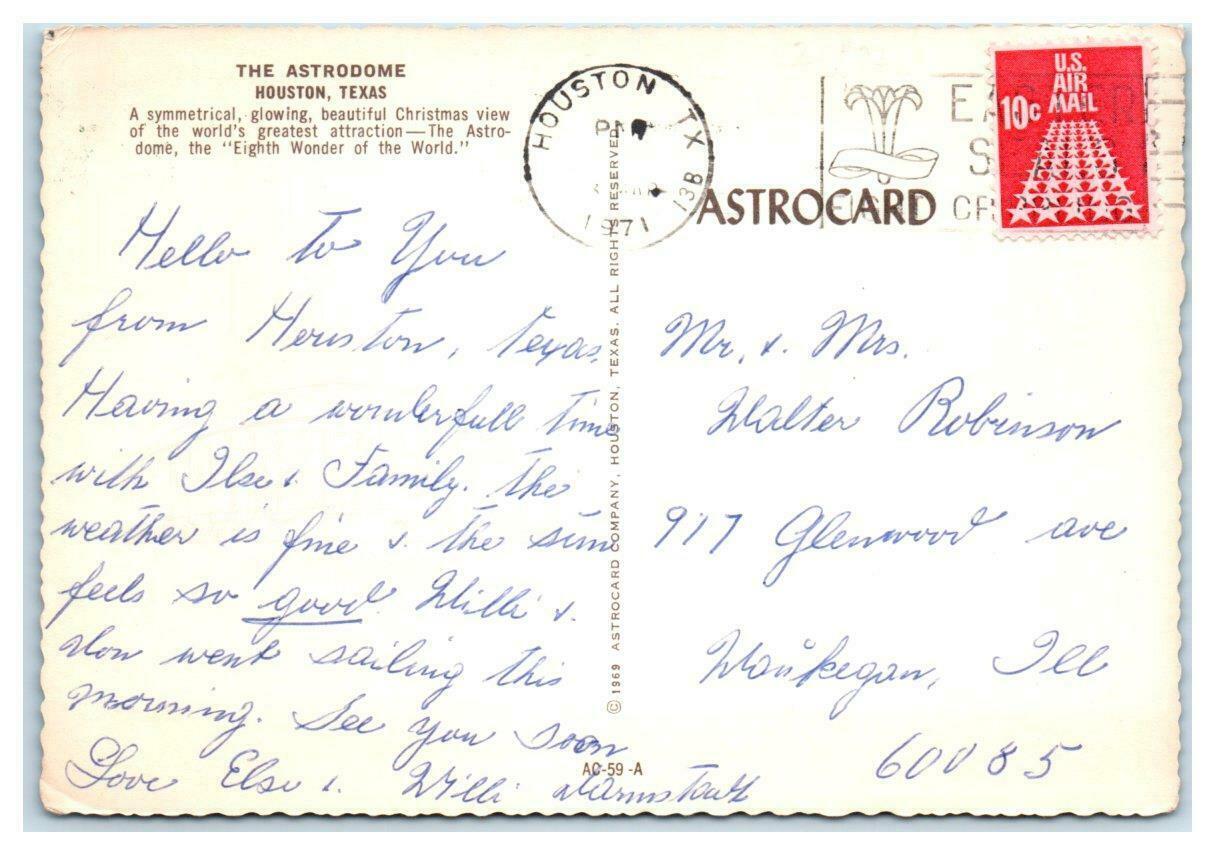 THE ASTRODOME
HOUSTON, TEXAS
A symmetrical, glowing, beautiful Christmas view
of the world's greatest attraction—The Astro-
dome, the "Eighth Wonder of the World."
HOUSTON TX
PM
1971
13B
U.S.
AIR
MAIL
10c
ASTROCARD
Hello to You
from Houston, Texas,
Having a wonderfull time
with Ilse & Family. The
weather is fine & the sun
feels so good. Willi &
Don went sailing this
morning. See you soon
Love Else & Willi Darmstadt
© 1969 ASTROCARD COMPANY, HOUSTON, TEXAS. ALL RIGHTS RESERVED
AC-59-A
Mr. & Mrs.
Walter Robinson
917 Glenwood ave
Waukegan, Ill
60085